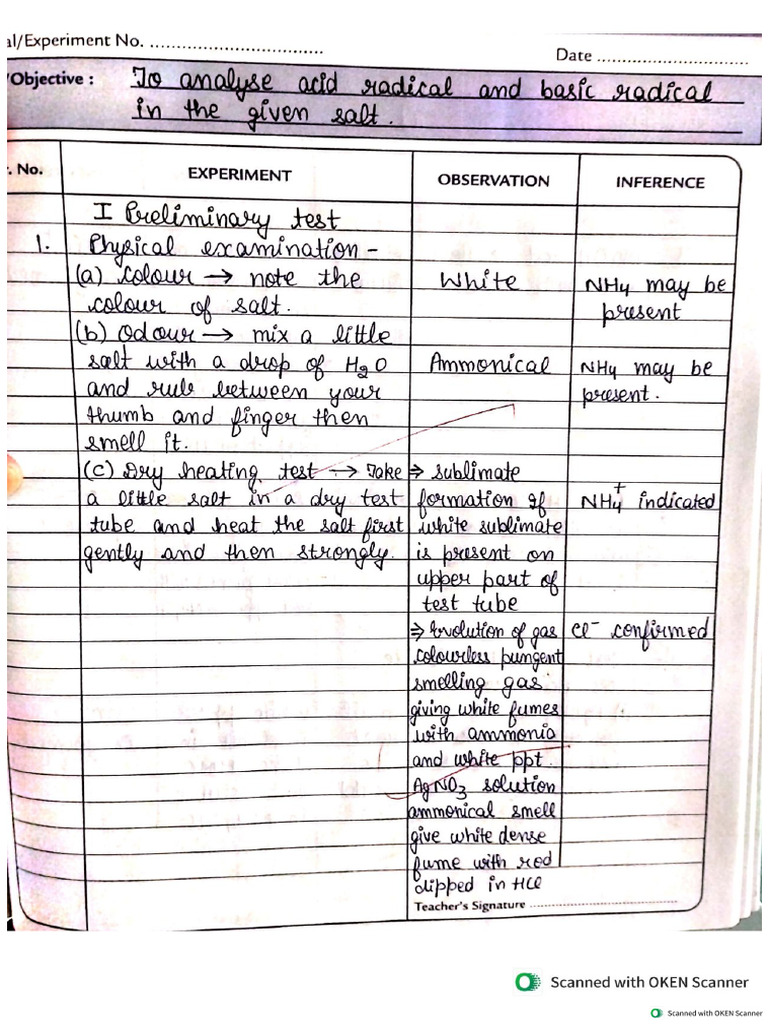 al/Experiment No. ................................
Date ..............................
/Objective : To analyse acid radical and basic radical
in the given salt.
. No. EXPERIMENT OBSERVATION INFERENCE
I Preliminary test
1. Physical examination -
(a) colour → note the White NH4 may be
colour of salt. present
(b) Odour → mix a little
salt with a drop of H2O Ammonical NH4 may be
and rub between your present.
thumb and finger then
smell it.
(c) Dry heating test → Take ⇒ sublimate
a little salt in a dry test formation of NH4+ indicated
tube and heat the salt first white sublimate
gently and then strongly. is present on
upper part of
test tube
⇒ Evolution of gas Cl- confirmed
colourless pungent
smelling gas
giving white fumes
with ammonia
and white ppt.
AgNO3 solution
ammonical smell
give white dense
fume with rod
dipped in HCl
Teacher's Signature ..............................
Scanned with OKEN Scanner
Scanned with OKEN Scanner